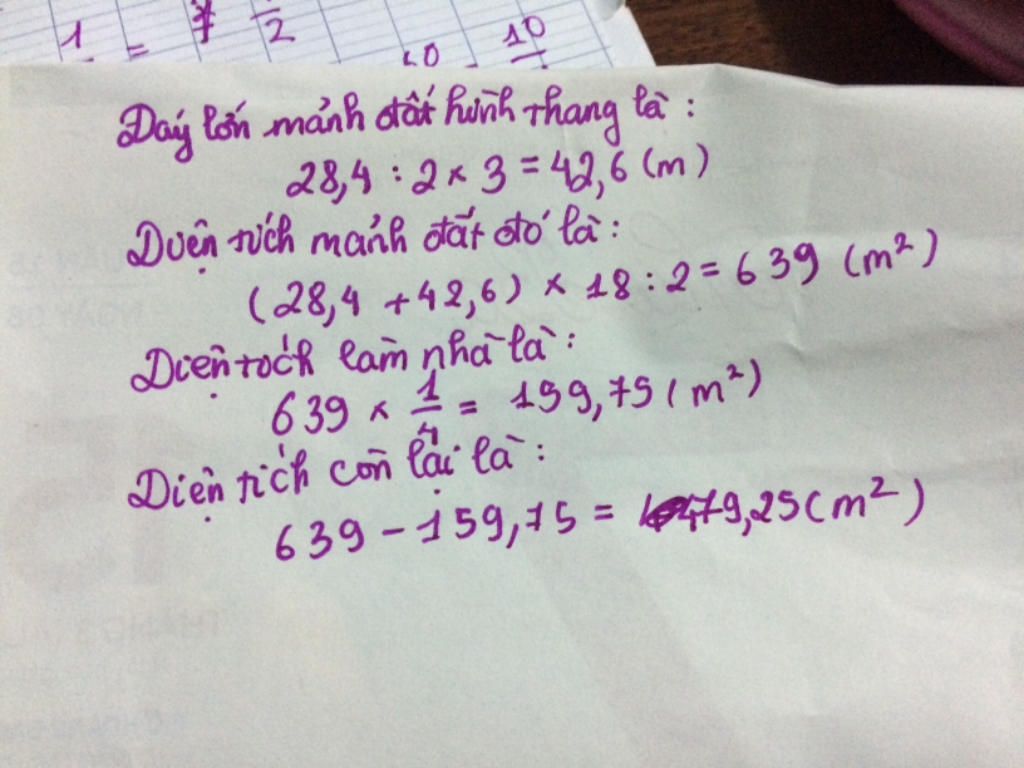 1 = 7 1/2 10 10
Đáy lớn mảnh đất hình thang là:
28,4 : 2 × 3 = 42,6 (m)
Diện tích mảnh đất đó là:
(28,4 + 42,6) × 18 : 2 = 639 (m²)
Diện tích làm nhà là:
639 × 1/4 = 159,75 (m²)
Diện tích còn lại là:
639 - 159,75 = 479,25 (m²)